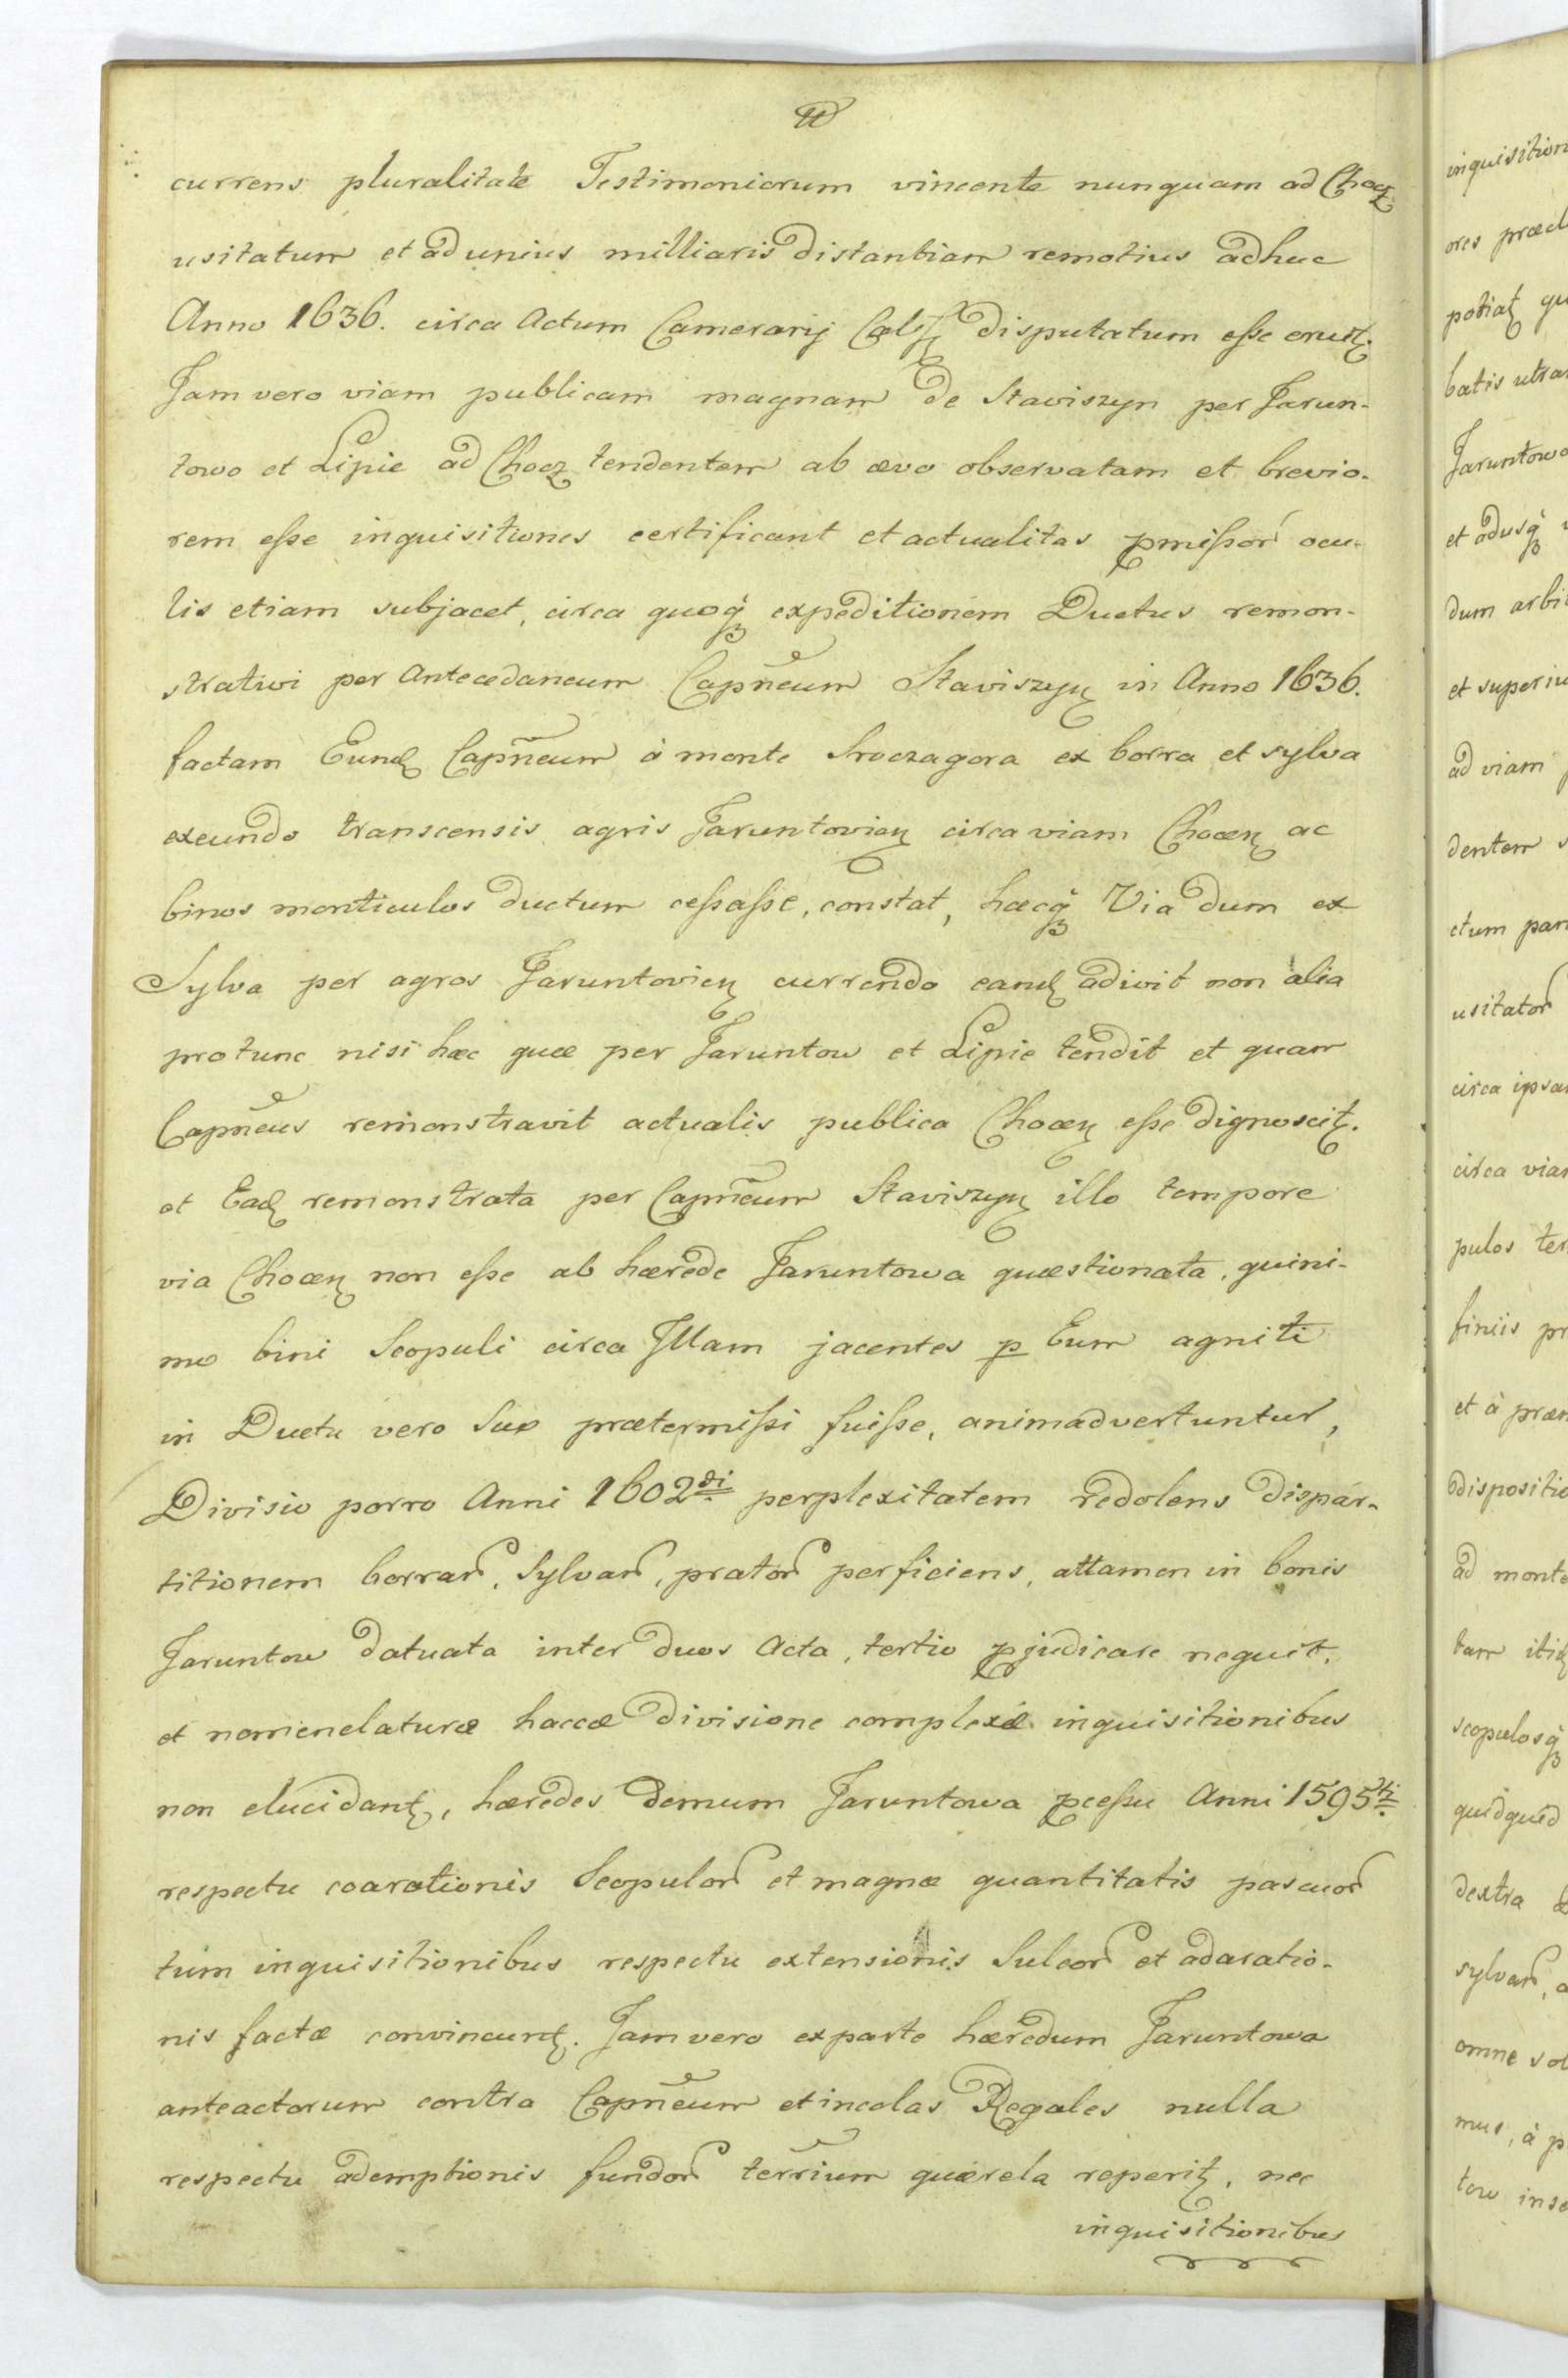 currens pluralitate Testimoniorum vincente nunquam ad Chocz
usitatum et ad unius milliaris distantiam remotius adhuc
Anno 1636. circa Actum Camerarij Calß disputatum esse eruitꝫ.
Jam vero viam publicam magnam de Staviszyn per Jarun-
towo et Lipie ad Chocz tendentem ab ævo observatam et brevio-
rem eſse inquisitiones certificant et actualitas pmiſsor ocu-
lis etiam subjacet, circa quoqꝫ expeditionem Ductus remon-
strativi per Antecedaneum Capñeum Staviszyn in Anno 1636.
factam Eund Capñeum à monte Sroczagora ex borra et sylva
exeundo transcensis agris Jaruntovien circa viam Chocen ac
binos monticulos ductum ceſsaſse, constat, hæcqꝫ Via dum ex
Sylva per agros Jaruntovien currendo eand adivit non alia
pro tunc nisi hæc quæ per Jaruntow et Lipie tendit et quam
Capñeus remonstravit actualis publica Chocen eſse dignoscitꝫ.
et Ead remonstrata per Capñeum Staviszyn illo tempore
via Chocen non eſse ab hærede Jaruntowa quæstionata, quini-
mo bini Scopuli circa Illam jacentes p Eum agniti
in Ductu vero Suo prætermiſsi fuiſse, animadvertuntur,
Divisio porro Anni 1602di perplexitatem redolens dispar-
titionem borrar, Sylvar, prator perficiens, attamen in bonis
Jaruntow datuata inter duos Acta, tertio pjudicare nequit,
et nomenclaturæ haccæ divisione complexæ inquisitionibus
non elucidantꝫ, hæredes demum Jaruntowa pceſsu Anni 1595ti
respectu coarationis Scopulor et magnæ quantitatis pascuor
tum inquisitionibus respectu extensionis Sulcor et adaratio-
nis factæ convincuntꝫ. Jam vero ex parte hæredum Jaruntowa
anteactorum contra Capñeum et incolas Regales nulla
respectu ademptionis fundor terrium quærela reperitꝫ, nec
inquisitionibus